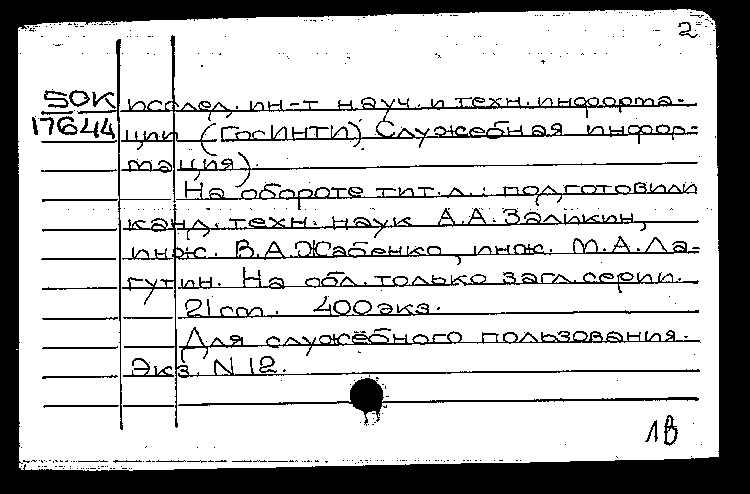 2
50К исслед. ин-т науч. и техн. информа-
17644 ции (ГосИНТИ) Служебная инфор-
мация).
На обороте тит. л.: подготовили
канд. техн. наук А.А. Заликин,
инж. В.А. Жабенко, инж. М.А. Ла-
гутин. На обл. только загл. серии.
21 cm. 400 экз.
Для служебного пользования.
Экз. N 12.
1В